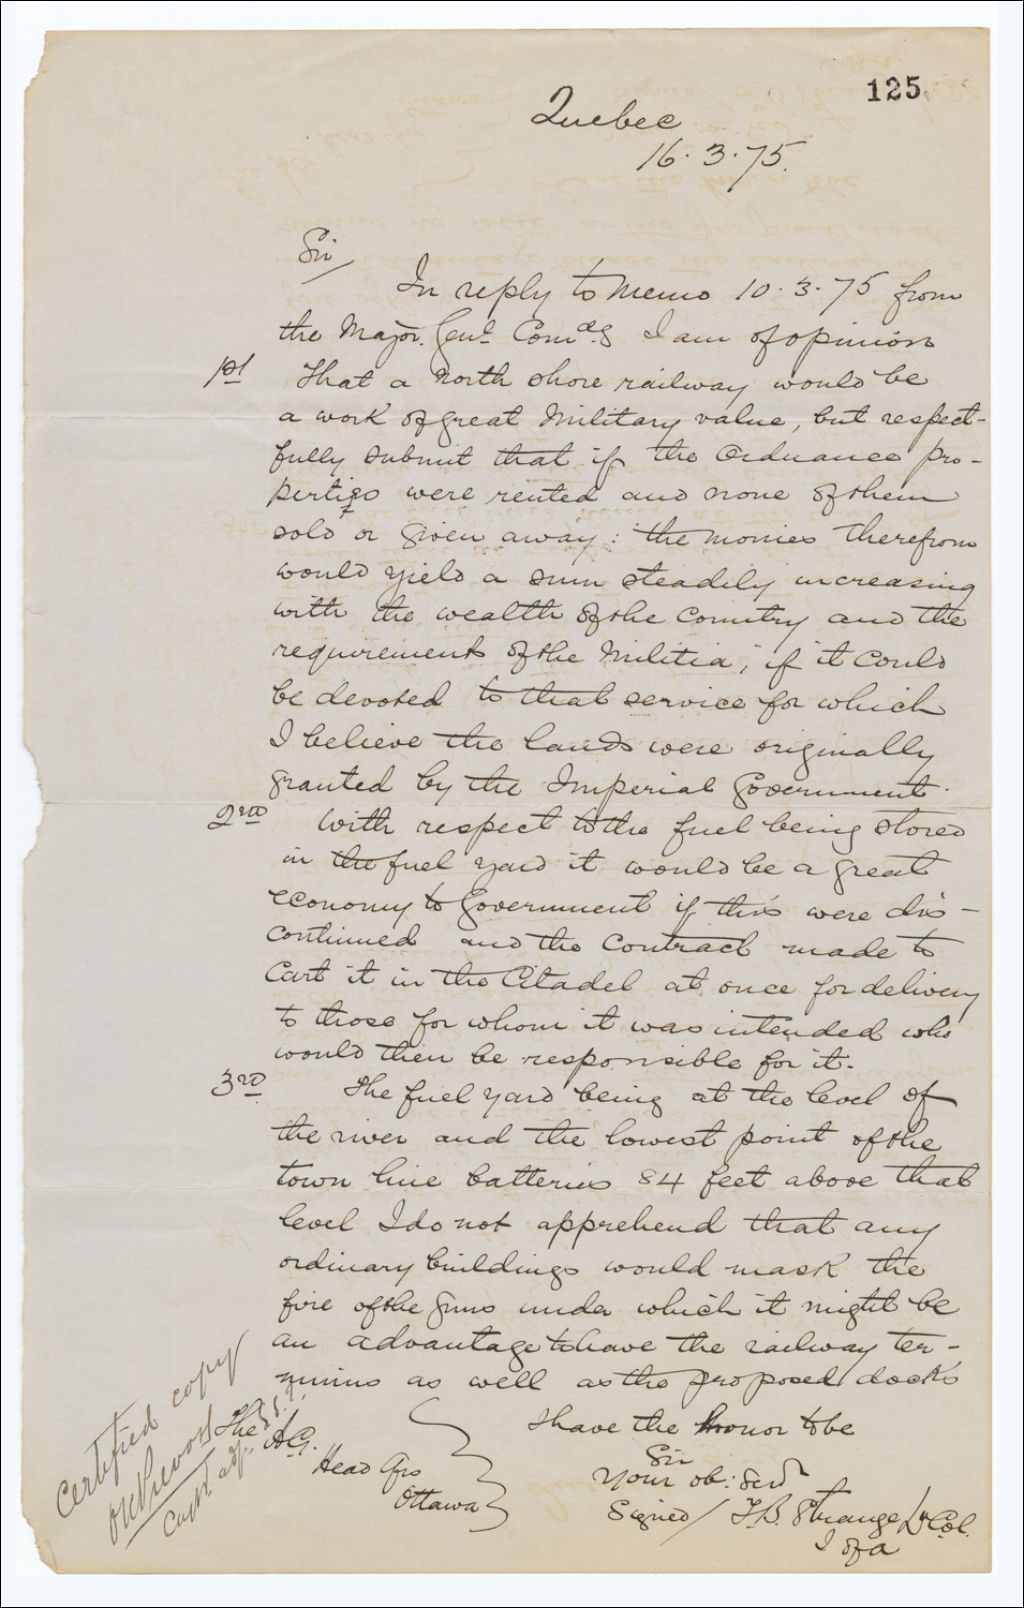 125
Quebec
16.3.75.
Sir
In reply to Memo 10.3.75 from
the Major. Genl. Comdg I am of opinion
1st That a North Shore railway would be
a work of great Military value, but respect-
fully submit that if the Ordnance pro-
perties were rented and none of them
sold or given away: the monies therefrom
would yield a sum steadily increasing
with the wealth of the Country and the
requirements of the Militia, if it could
be devoted to that service for which
I believe the lands were originally
granted by the Imperial Government.
2nd With respect to the fuel being stored
in the fuel yard it would be a great
economy to Government if this were dis-
continued and the Contract made to
Cart it in the Citadel at once for delivery
to those for whom it was intended who
would then be responsible for it.
3rd The fuel yard being at the level of
the river and the lowest point of the
town line batteries 84 feet above that
level I do not apprehend that any
ordinary buildings would mask the
fire of the guns under which it might be
an advantage to have the railway ter-
minus as well as the proposed docks
I have the honor to be
Sir
Your ob: Servt
Signed / T.B. Strange Lt Col.
I of A
The A.G.
Head Qrs
Ottawa
Certified copy
Capt adj.